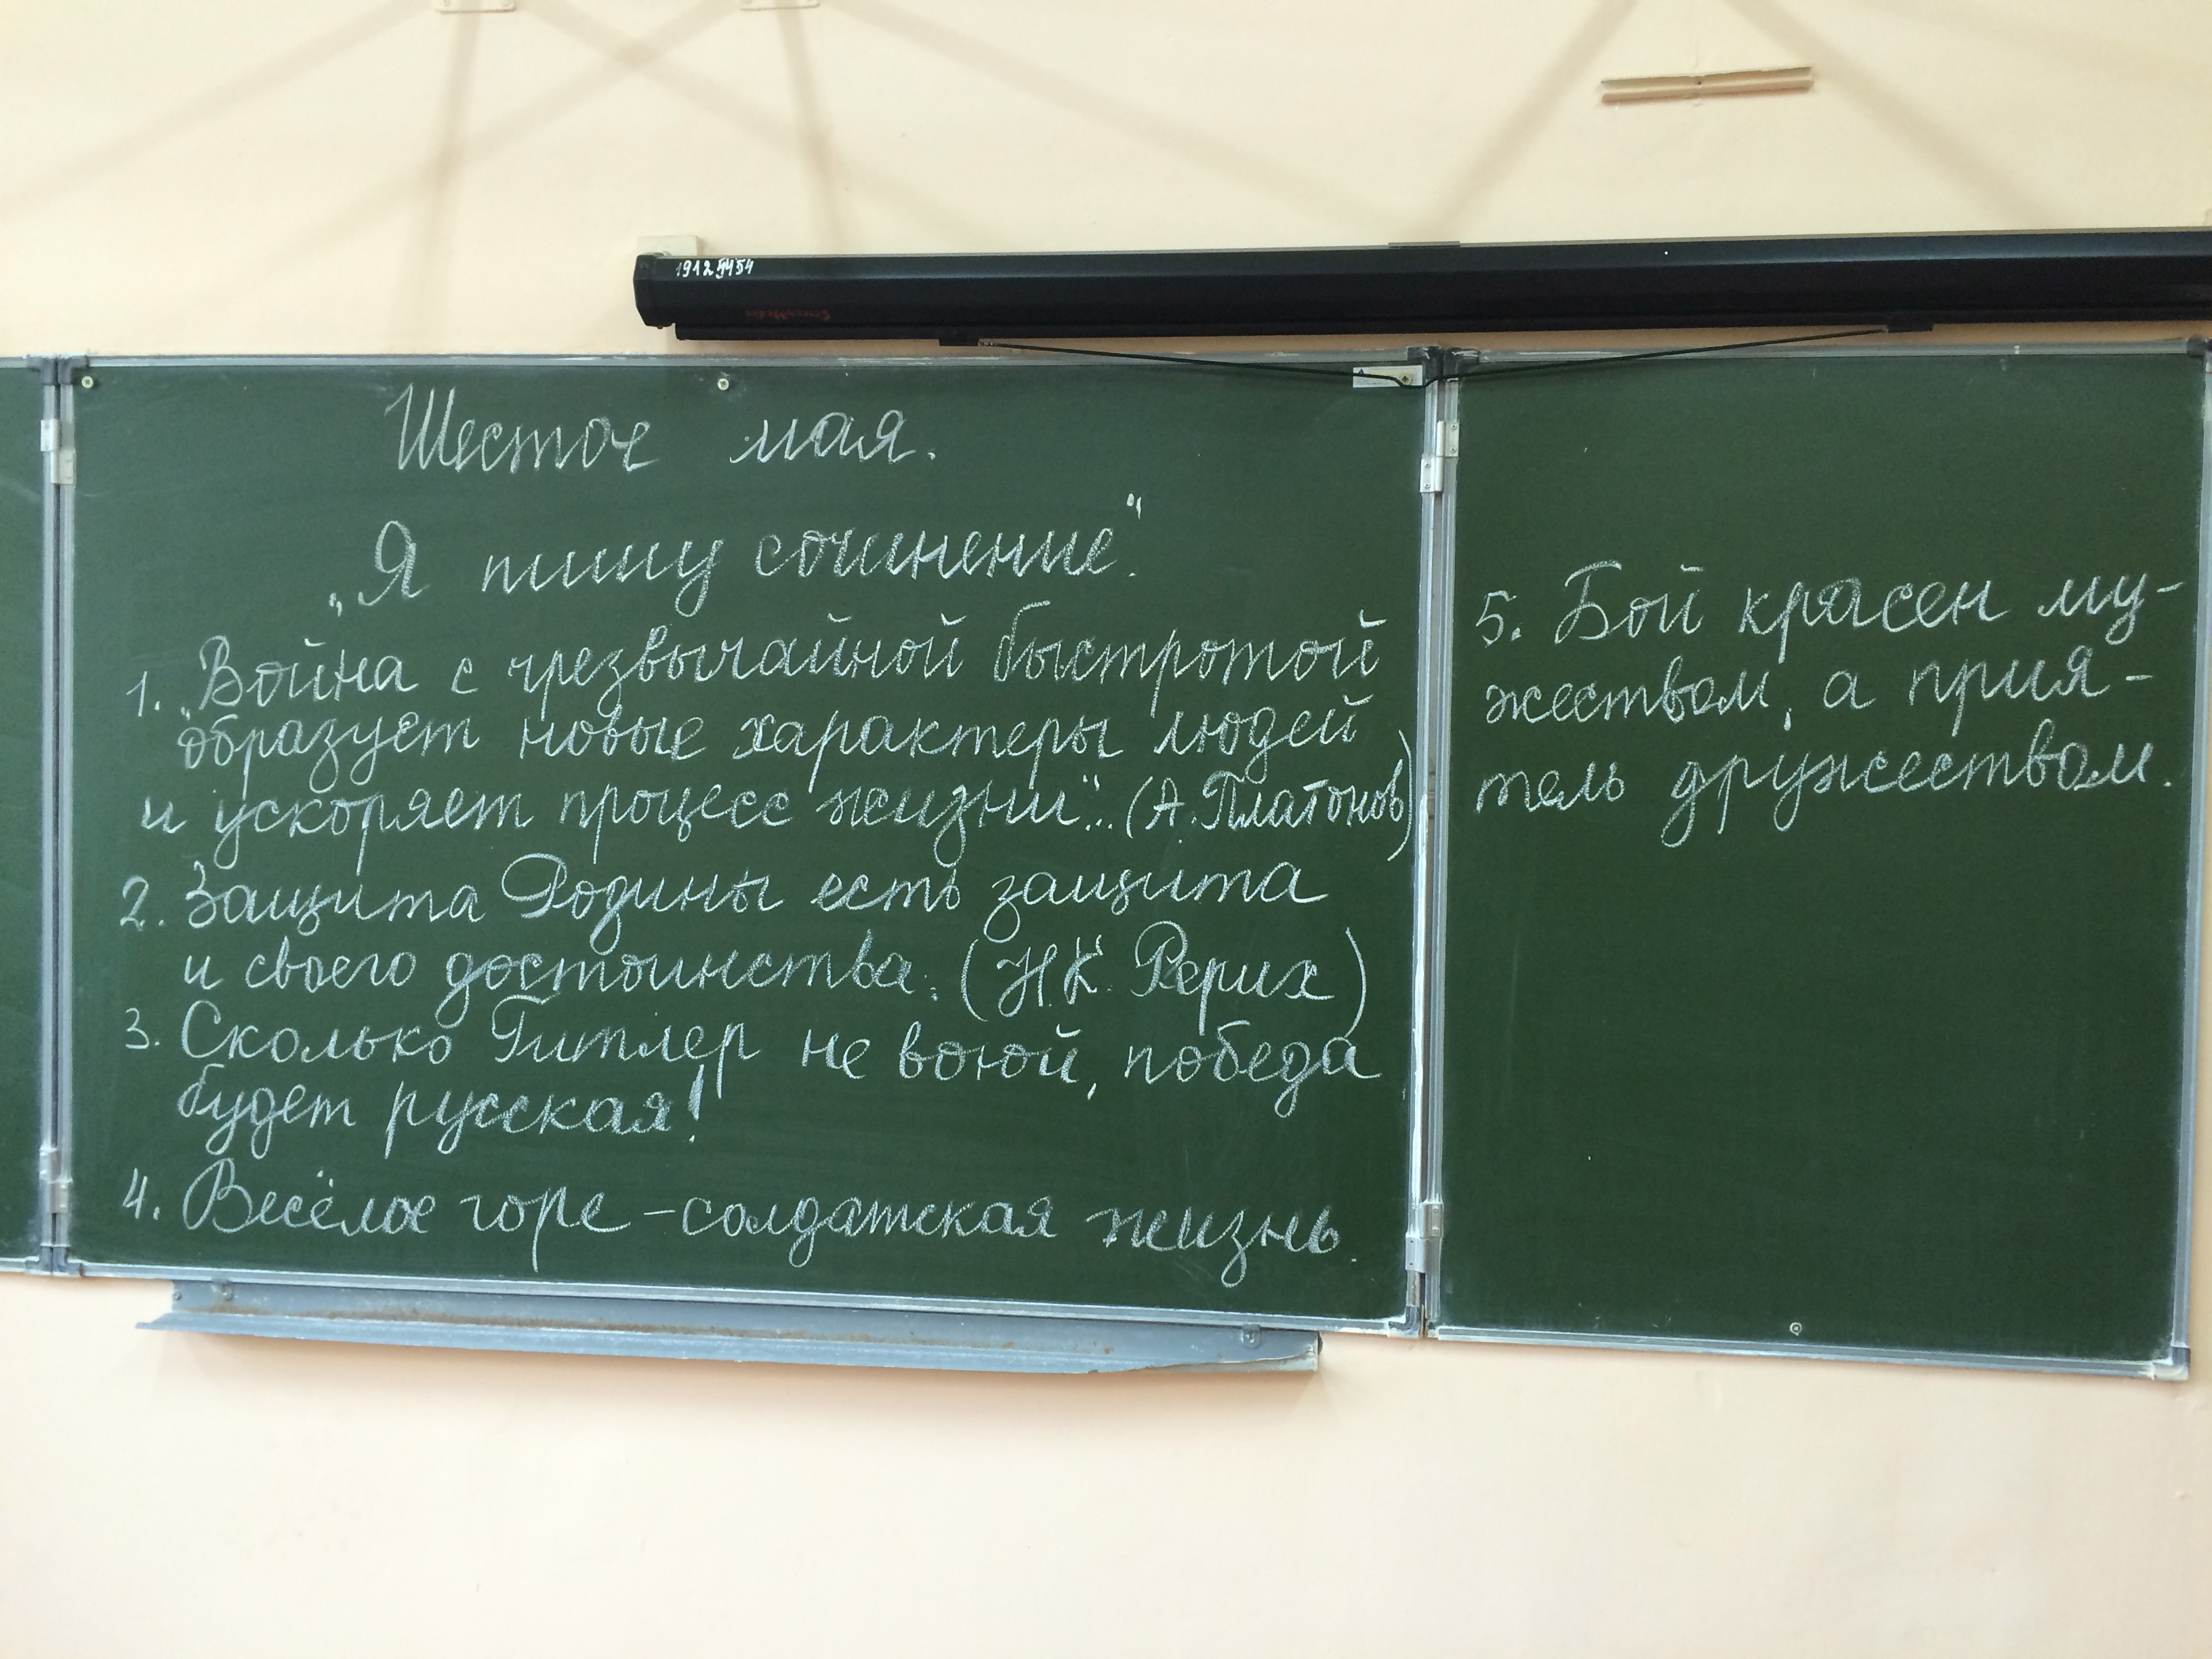 19125454
Шестое мая.
„Я пишу сочинение".
1. „Война с чрезвычайной быстротой
образует новые характеры людей
и ускоряет процесс жизни"... (А. Платонов)
2. Защита Родины есть защита
и своего достоинства. (Н.К. Рерих)
3. Сколько Гитлер не воюй, победа
будет русская!
4. Весёлое горе – солдатская жизнь.
5. Бой красен му-
жеством, а прия-
тель дружеством.